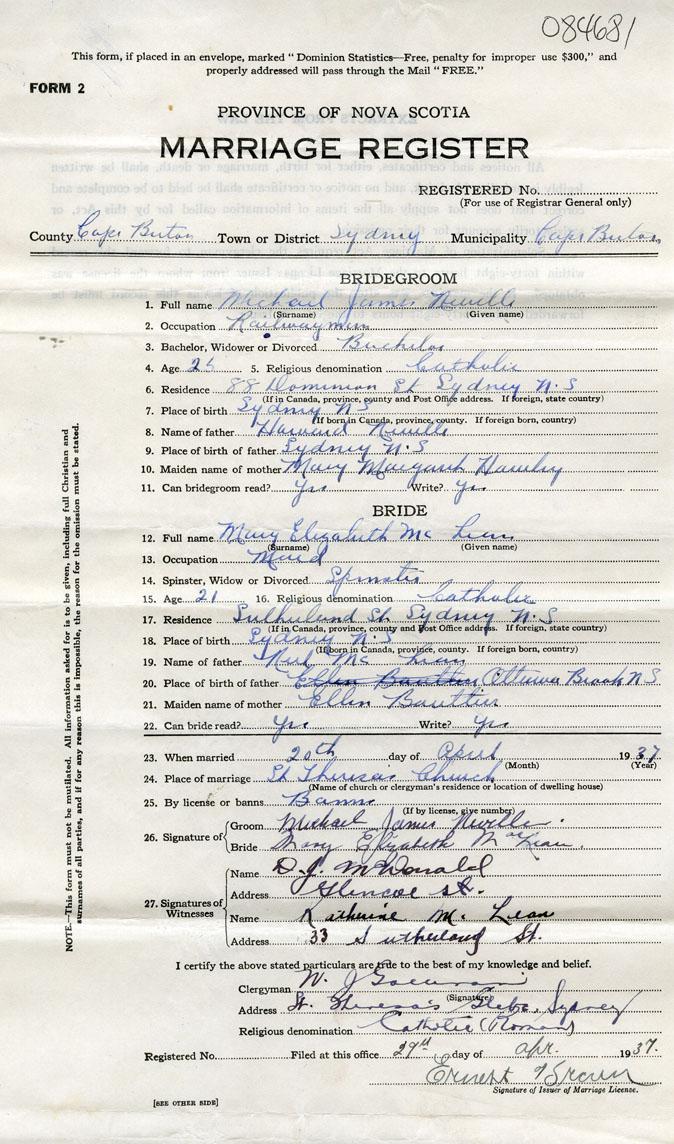 084681
This form, if placed in an envelope, marked "Dominion Statistics—Free, penalty for improper use $300," and
properly addressed will pass through the Mail "FREE."
FORM 2
PROVINCE OF NOVA SCOTIA
MARRIAGE REGISTER
REGISTERED No.
(For use of Registrar General only)
County Cape Breton Town or District Sydney Municipality Cape Breton
BRIDEGROOM
1. Full name Michael James Neville
(Surname) (Given name)
2. Occupation Railwayman
3. Bachelor, Widower or Divorced Bachelor
4. Age 5. Religious denomination Catholic
6. Residence 88 Dominion St Sydney N.S
(If in Canada, province, county and Post Office address. If foreign, state country)
7. Place of birth Sydney N S
(If born in Canada, province, county. If foreign born, country)
8. Name of father Howard Neville
9. Place of birth of father Sydney N.S
10. Maiden name of mother Mary Margaret
11. Can bridegroom read? Yes Write? Yes
BRIDE
12. Full name Mary Elizabeth Mc Lean
(Surname) (Given name)
13. Occupation Maid
14. Spinster, Widow or Divorced Spinster
15. Age 21 16. Religious denomination Catholic
17. Residence Sutherland St Sydney N.S
(If in Canada, province, county and Post Office address. If foreign, state country)
18. Place of birth Sydney N.S
(If born in Canada, province, county. If foreign born, country)
19. Name of father Neil Mc Lean
20. Place of birth of father Ottawa Brook N S
21. Maiden name of mother Ellen
22. Can bride read? Yes Write? Yes
23. When married 20th day of April 1937
(Month) (Year)
24. Place of marriage St Theresa's Church
(Name of church or clergyman's residence or location of dwelling house)
25. By license or banns Banns
(If by license, give number)
26. Signature of Groom Michael James Neville.
Bride Mary Elizabeth MacLean.
27. Signatures of Witnesses
Name D. J. McDonald
Address Glencoe St.
Name Katherine Mc Lean
Address 33 Sutherland St.
I certify the above stated particulars are true to the best of my knowledge and belief.
Clergyman W. J.
(Signature)
Address St. Theresa's Glebe, Sydney
Religious denomination Catholic (Roman)
Registered No. Filed at this office 29th day of Apr. 1937.
Ernest Brown
Signature of Issuer of Marriage License.
[SEE OTHER SIDE]
NOTE.—This form must not be mutilated. All information asked for is to be given, including full Christian and
surnames of all parties, and if for any reason this is impossible, the reason for the omission must be stated.